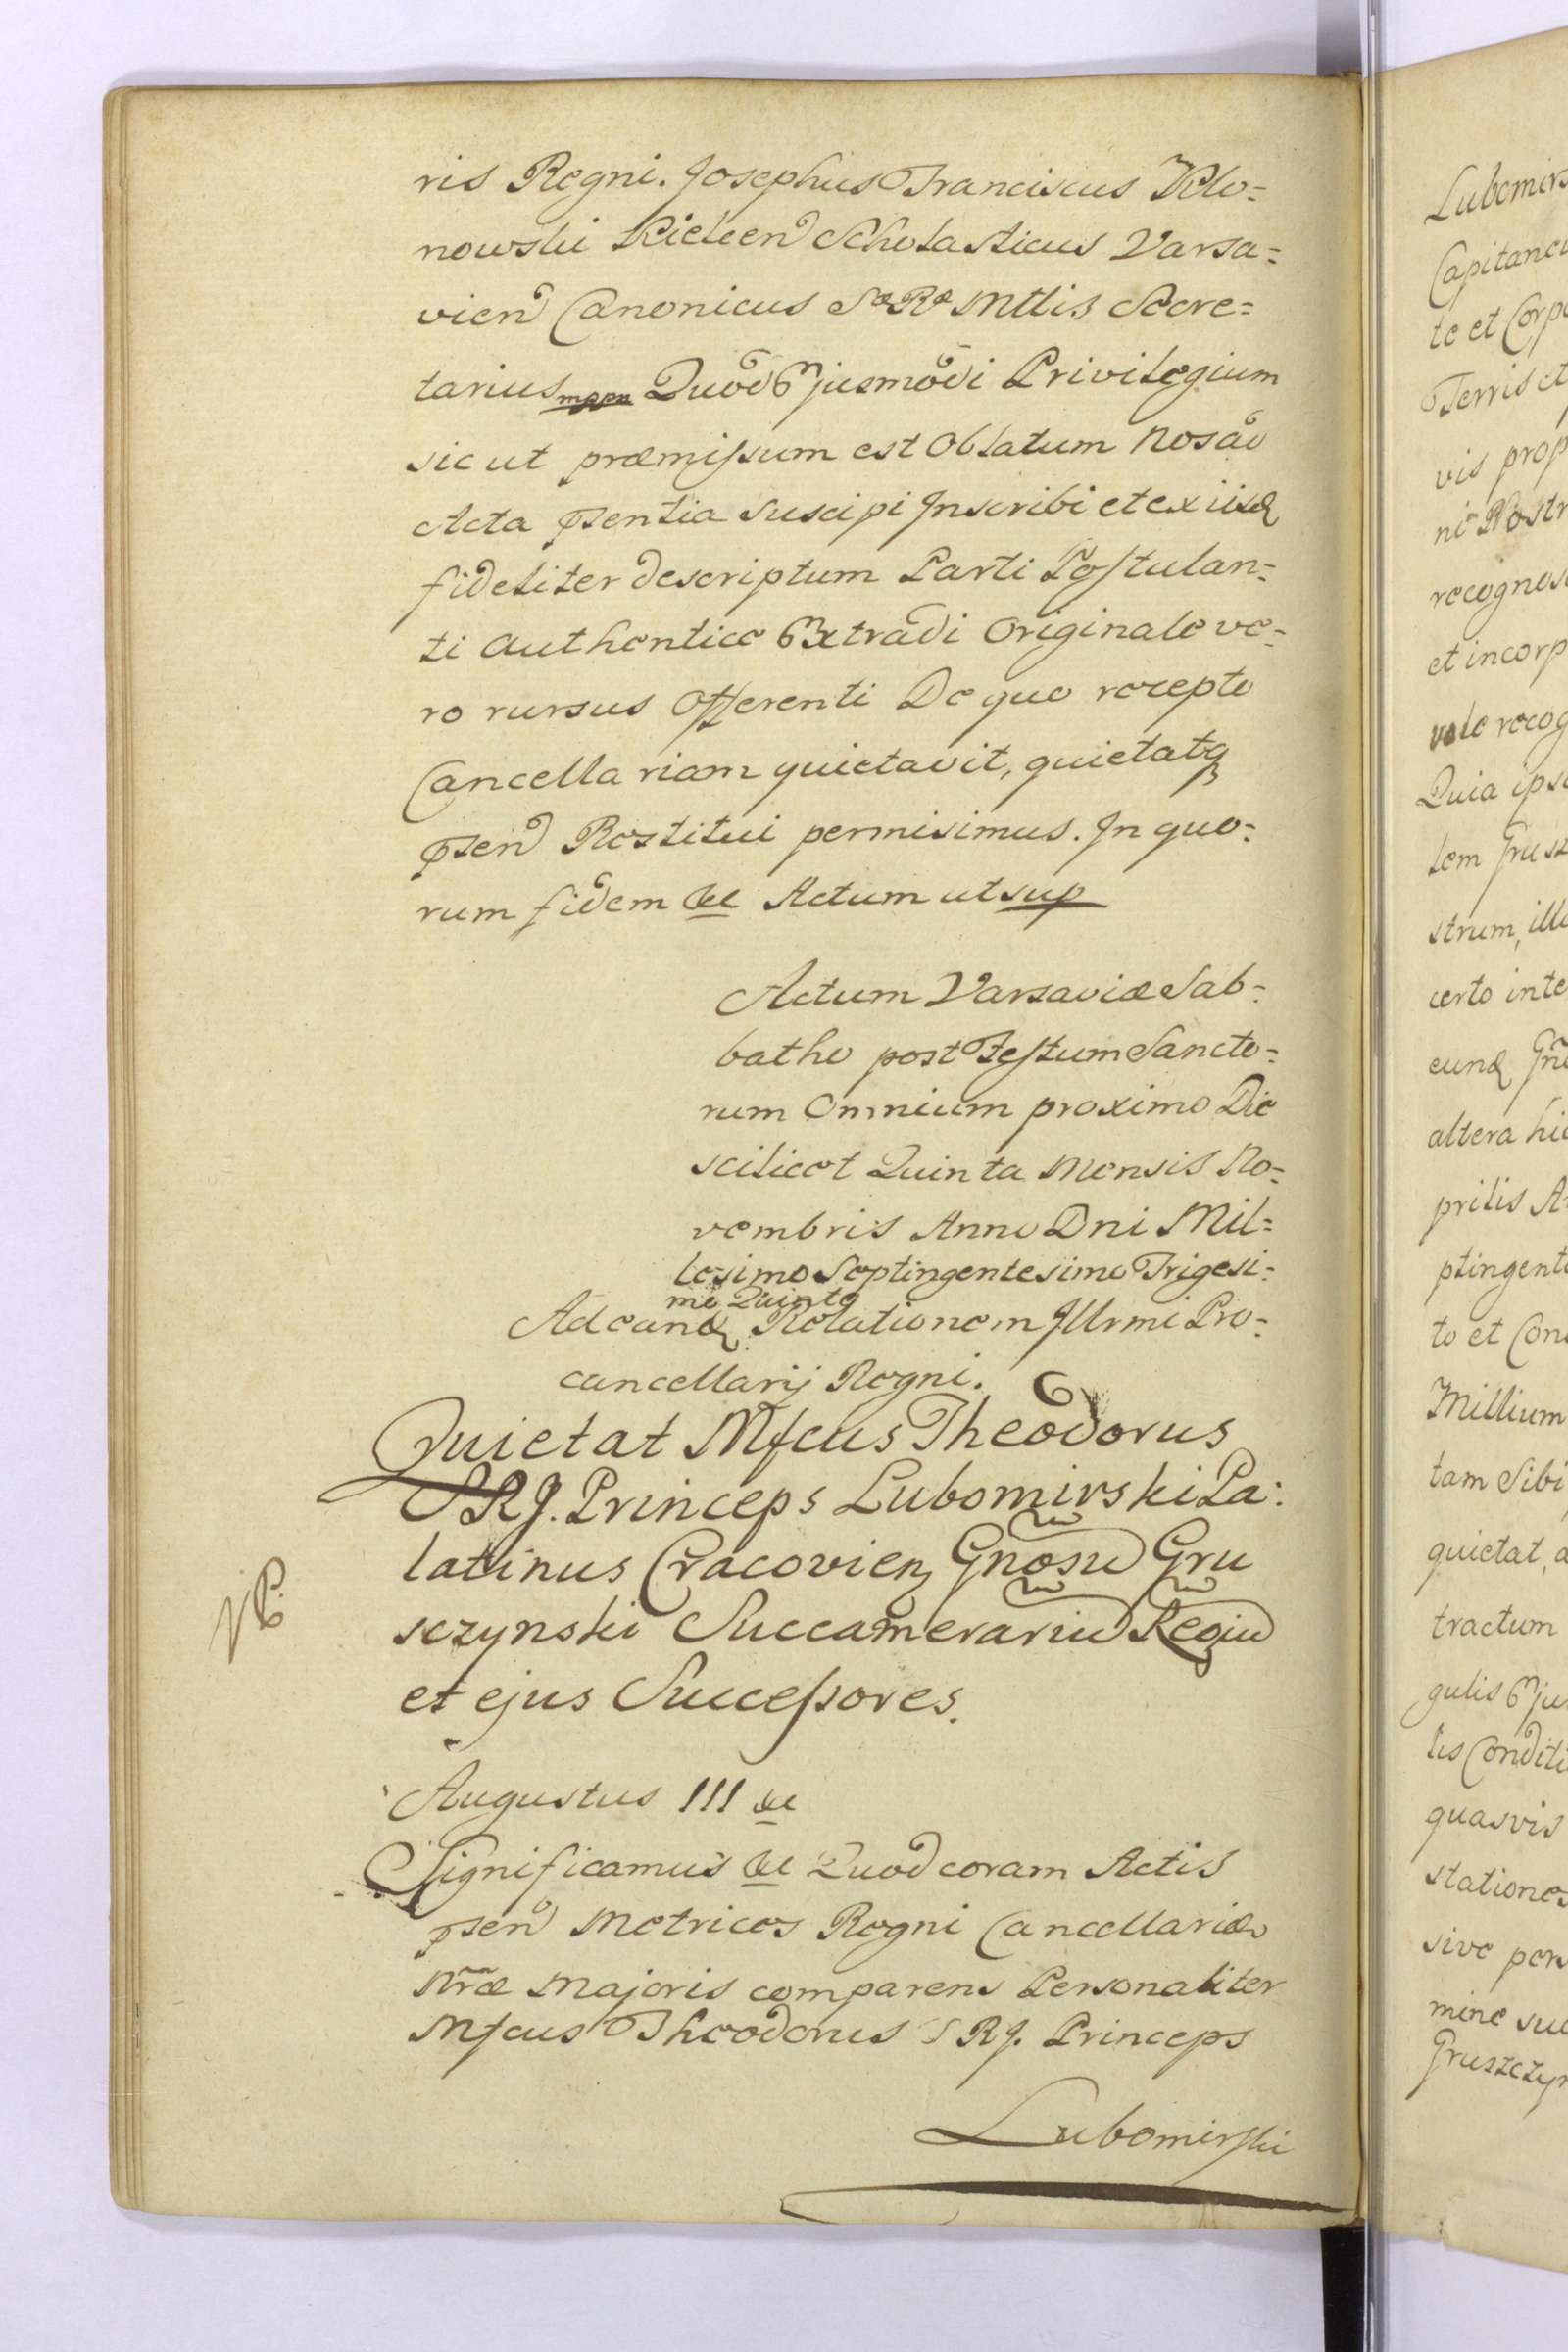 ris Regni. Josephus Franciscus Klo=
nowski Kielcen Scholasticus Varsa=
vien Canonicus Sæ Ræ Mttis Secre=
tarius mppa Quod Ejusmodi Privilegium
sic ut præmissum est Oblatum Nos ad
Acta psentia Suscipi Inscribi et ex iisd
fideliter descriptum Parti Postulan=
ti authentice Extradi Originale ve=
ro rursus Offerenti De quo recepto
Cancellariam quietavit, quietatq
psen Restitui permisimus. In quo=
rum fidem &c Actum ut sup
Actum Varsaviæ Sab=
batho post Festum Sancto=
rum Omnium proximo Die
scilicet Quinta Mensis No=
vembris Anno Dni Mil=
lesimo Septingentesimo Trigesi=
mo Quinto
Ad eand Relationem Illrmi Pro=
cancellarij Regni.
Quietat Mfcus Theodorus
SRJ. Princeps Lubomirski Pa:
latinus Cracovien Gnosu Gru
sczynski Succamerariu Regiu
et ejus Successores.
Augustus III &c
Significamus &c Quod coram Actis
psen Metrices Regni Cancellariæ
Nræ Majoris comparens Personaliter
Mfcus Theodorus SRJ. Princeps
Lubomirski
Lubomirs
Capitaneu
te et Corp
Terris et
vis prop
ni Nostr
recognos
et incorp
vale recog
Quia ips
lem Grusz
strum, ill
certo inte
eund Gn
altera hi
prilis A
ptingent
to et Con
Millium
tam Sibi
quietat, a
tractum
gulis Eju
lis Conditi
quasvis
stationes
sive per
mine su
Gruszczyn